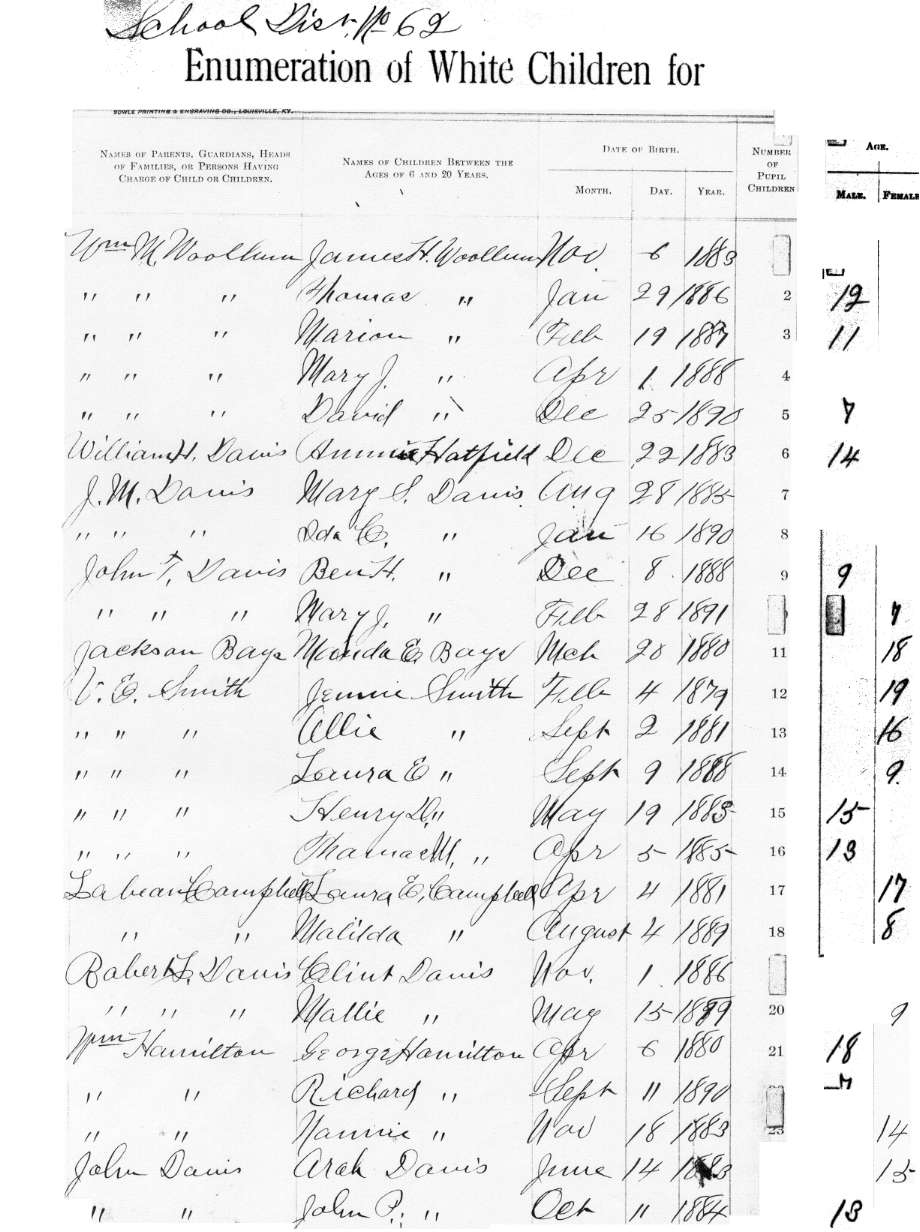 School Dist. No 62
Enumeration of White Children for
BOWLE PRINTING & ENGRAVING CO., LOUISVILLE, KY.
Names of Parents, Guardians, Heads of Families, or Persons Having Charge of Child or Children. Names of Children Between the Ages of 6 and 20 Years. Date of Birth. Month. Day. Year. Number of Pupil Children Age. Male. Female
Wm M. Woollum James H. Woollum Nov 6 1883
" " " Thomas " Jan 29 1886 2 12
" " " Marion " Feb 19 1887 3 11
" " " Mary J. " Apr 1 1888 4
" " " David " Dec 25 1890 5 7
William H. Davis Annie Hatfield Dec 22 1883 6 14
J. M. Davis Mary S. Davis Aug 28 1885 7
" " " Ida C. " Jan 16 1890 8
John F. Davis Ben H. " Dec 8 1888 9 9
" " " Mary J. " Feb 28 1891 7
Jackson Bays Manda E. Bays Mch 20 1880 11 18
V. E. Smith Jennie Smith Feb 4 1879 12 19
" " " Allie " Sept 2 1881 13 16
" " " Laura E " Sept 9 1888 14 9.
" " " Henry D. " May 19 1883 15 15
" " " Thomas M. " Apr 5 1885 16 13
Labean Campbell Laura E. Campbell Apr 4 1881 17 17
" " Malilda " August 4 1889 18 8
Robert L. Davis Clint Davis Nov. 1 1886
" " " " Mallie " May 15 1889 20 9
Wm Hamilton George Hamilton Apr 6 1880 21 18
" " Richard " Sept 11 1890 7
" " Nannie " Nov 18 1883 23 14
John Davis Arah Davis June 14 1883 15
" " John P. " Oct 11 1884 13